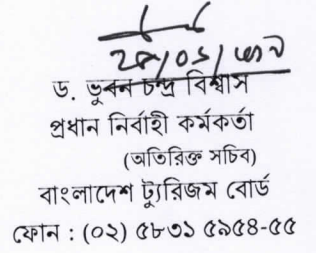 ড. ভুবন চন্দ্র বিশ্বাস
প্রধান নির্বাহী কর্মকর্তা
(অতিরিক্ত সচিব)
বাংলাদেশ ট্যুরিজম বোর্ড
ফোন : (০২) ৫৮৩১ ৫৯৫৪-৫৫